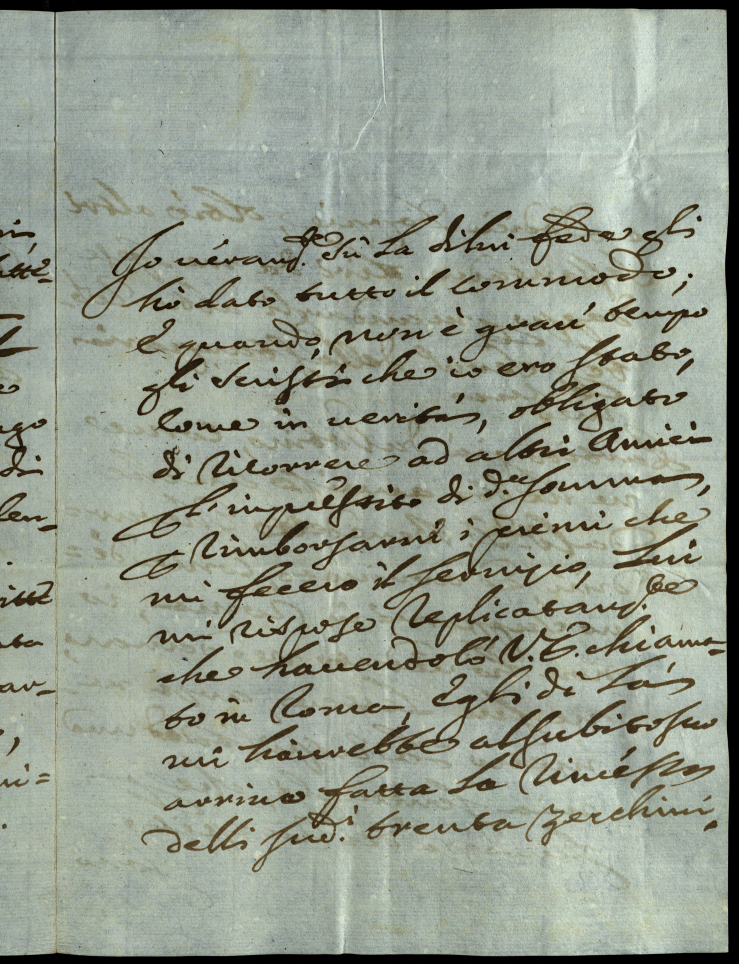 Io veram.te sù la dilui fede gli
hò dato tutto il commodo;
E quando, non è guari tempo
gli scrissi che io ero stato,
come in verità, obligato
di ricorrere ad altri Amici
p l'impressito di d.a somma,
p rimborsarne i primi che
mi fecero il servizio, Lui
mi rispose replicatam.te
che havendolo V.E. chiama=
to in Roma, Egli di là
mi haurebbe al subito suo
arrivo fatta la rimessa
delli sud.i trenta zecchini.